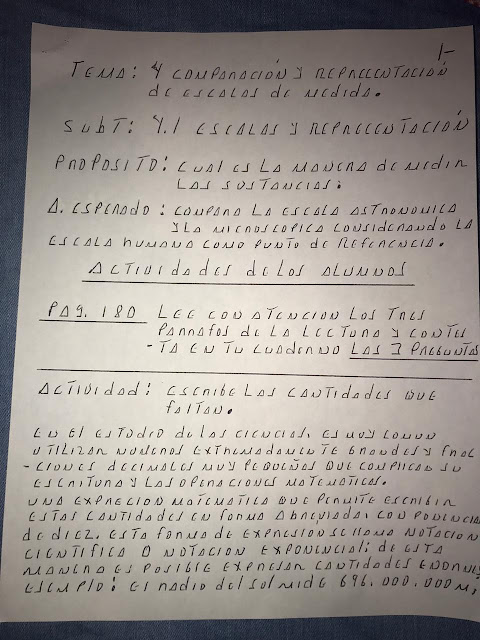 1-
TEMA: 4 COMPARACIÓN Y REPRECENTACIÓN
de ESCALAS de MEDIDA.
SubT: 4.1 ESCALAS Y REPRECENTACIÓN
PROPOSITO: CUAL ES LA MANERA de MEDIR
LAS SUSTANCIAS.
A. ESPERADO: COMPARA LA ESCALA ASTRONOMICA
Y LA MICROSCOPICA CONSIDERANDO LA
ESCALA hUMANA COMO PUNTO de REFERENCIA.
ACTIVIDADES de LOS ALUMNOS
PAG. 180 LEE CON ATENCION LOS TRES
PARRAFOS DE LA LECTURA Y CONTES
-TA EN TU CUADERNO LAS 3 PREGUNTAS
ACTIVIDAD: ESCRIBE LAS CANTIDADES QUE
FALTAN.
EN El ESTUDIO de las CIENCIAS, ES MUY COMUN
UTILIZAR NUMEROS EXTREMADAMENTE GRANDES Y FRAC
-CIONES DECIMALES MUY PEQUEÑOS QUE COMPLICAN SU
ESCRITURA Y LAS OPERACIONES MATEMATICAS.
UNA EXPRECION MATEMATICA QUE PERMITE ESCRIBIR
ESTAS CANTIDADES EN FORMA ABREVIADA, CON POTENCIAS
de dIEZ. ESTA FORMA DE EXPRESION SE LLAMA NOTACION
CIENTIFICA O NOTACION EXPONENCIAL: de ESTA
MANERA ES POSIBLE EXPRESAR CANTIDADES ENORMES
EJEMPLO: El RADIO del SOL MIDE 696.000.000 M,